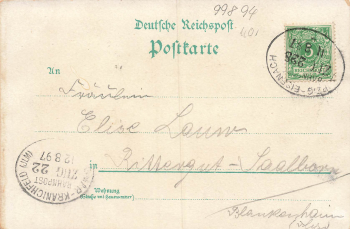 99894
401
Deutsche Reichspost
Postkarte
An
Fräulein
Elise Lauw
in Rittergut-Saalborn
Wohnung
(Straße und Hausnummer)
Blankenhain
EISENACH
KRANICHFELD
BAHNPOST
ZUG 22
12.8.97